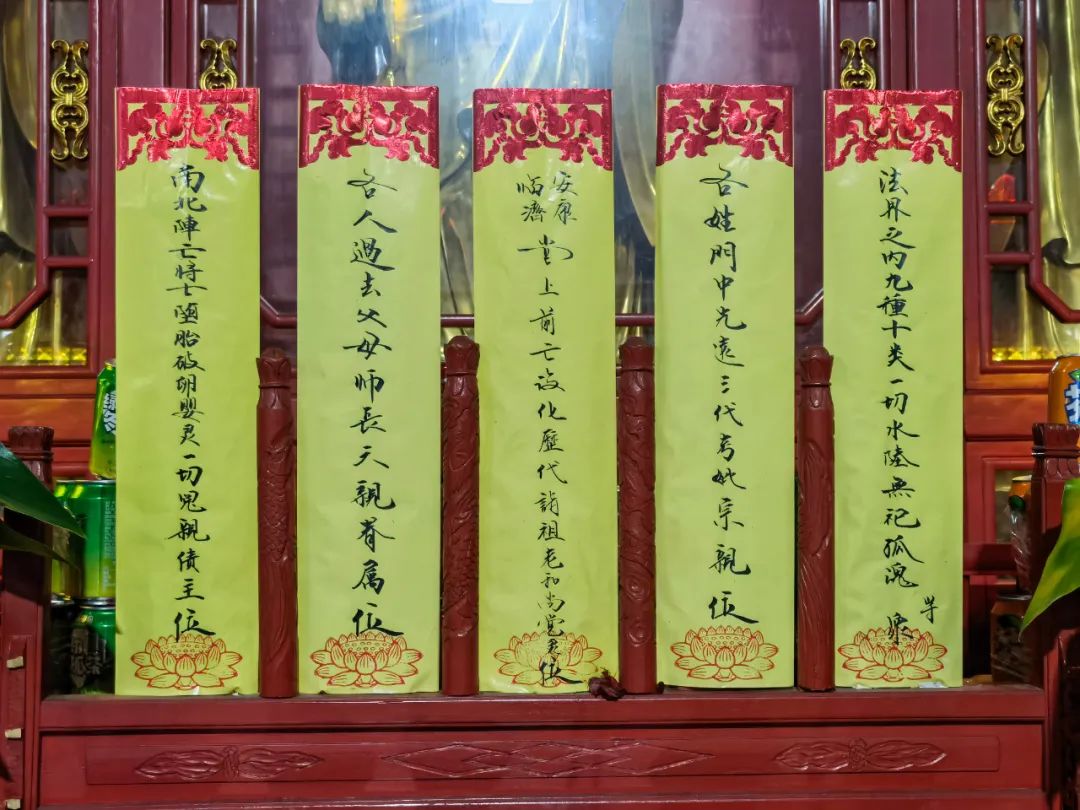 法界之内九種十类一切水陸無祀孤魂等衆
各姓門中先遠三代考妣宗親位
安康
临濟
堂上前亡後化歷代諸祖老和尚覺灵位
各人過去父母師長六親眷属位
南北陣亡将士堕胎破卵嬰灵一切冤親债主位